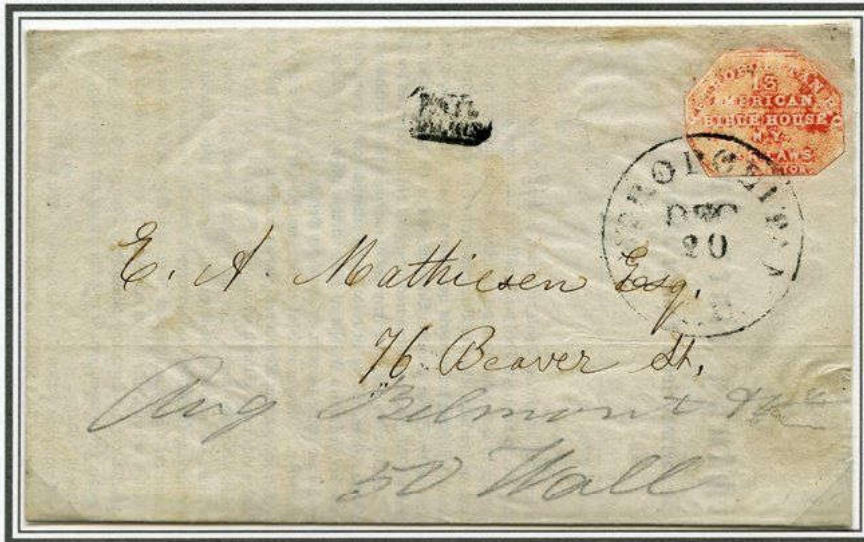 PAID
13
AMERICAN
BIBLE HOUSE
N.Y.
DEC
20
E. A. Mathiesen Esq.
76 Beaver St,
Aug Belmont & Co
50 Wall